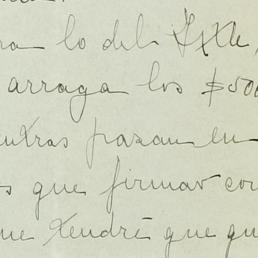 ra lo del Ixtle,
arraga los $500
entras pasan en
s que firmar con
me tendré que qu